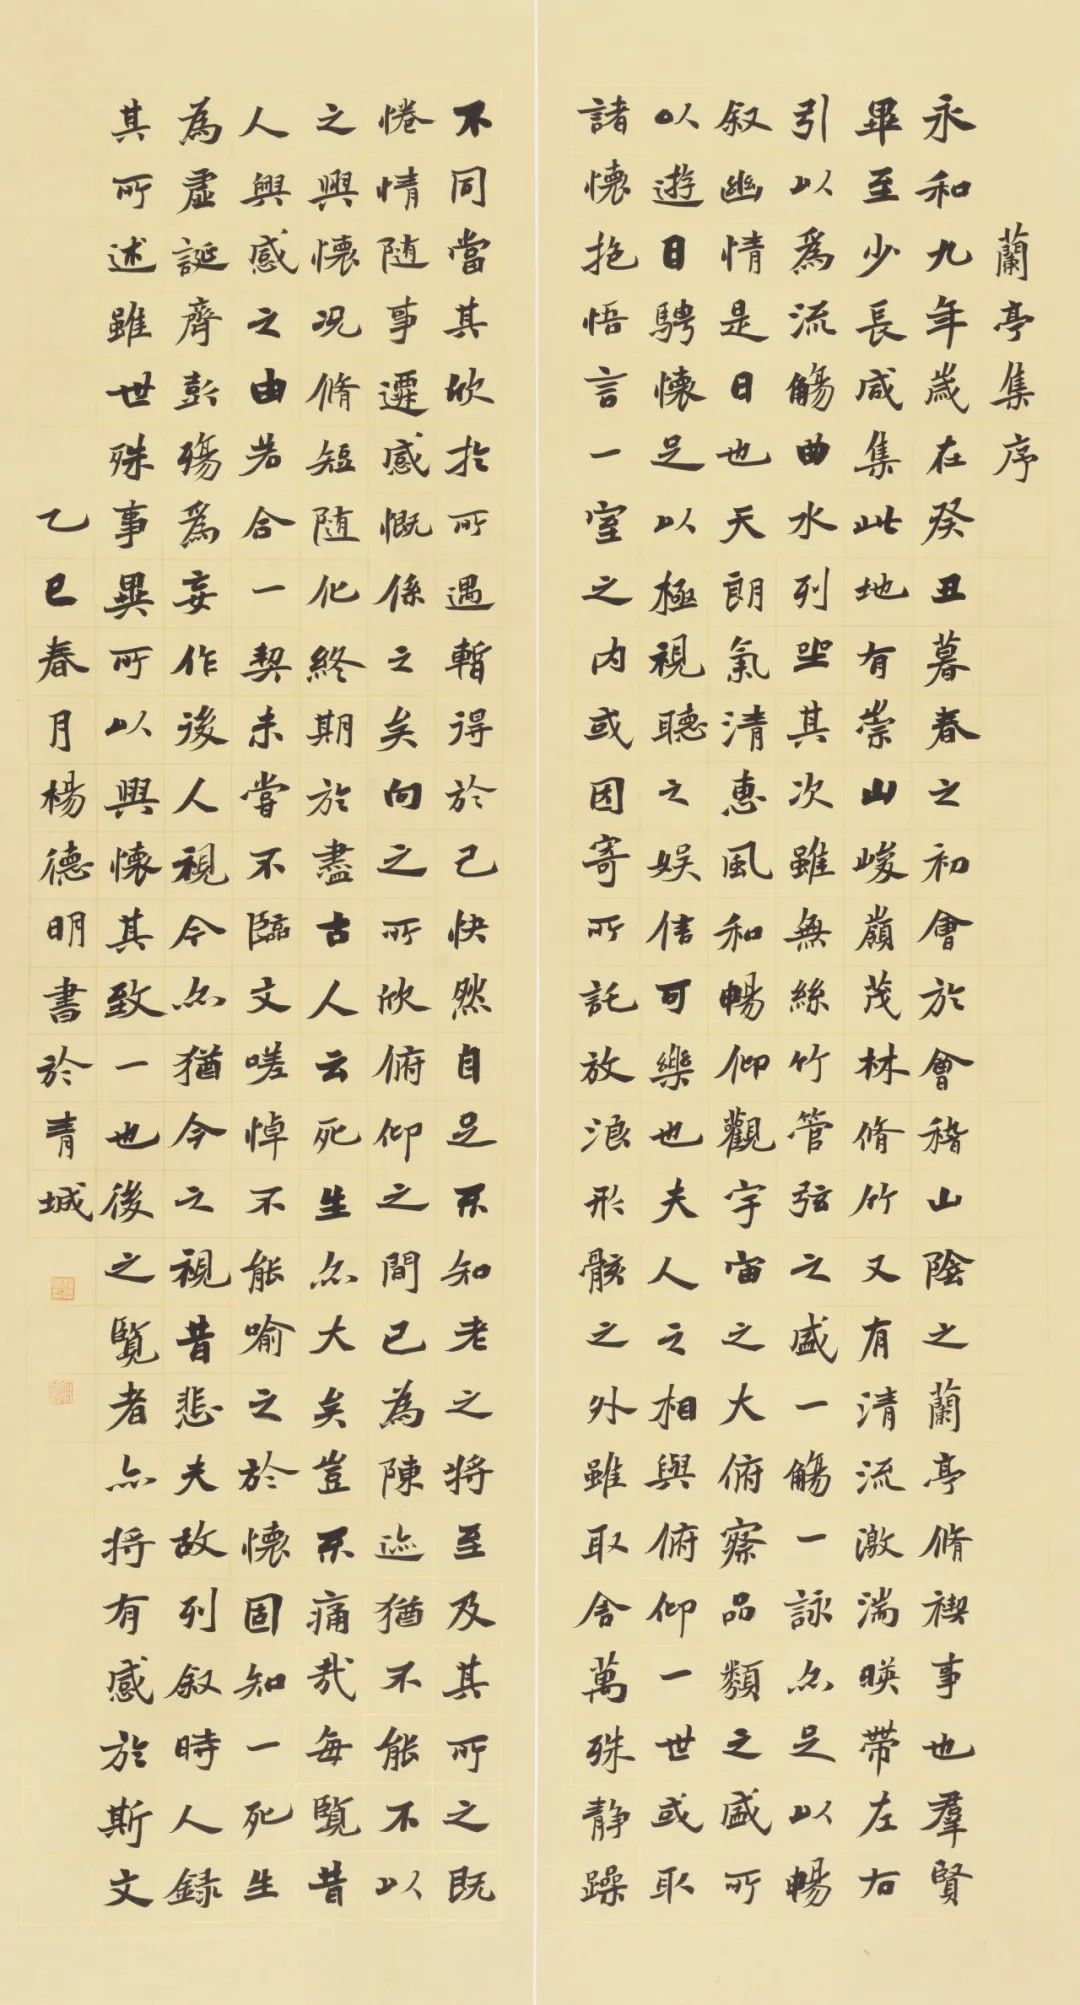 蘭亭集序
永和九年歲在癸丑暮春之初會於會稽山陰之蘭亭脩禊事也羣賢
畢至少長咸集此地有崇山峻嶺茂林脩竹又有清流激湍暎帶左右
引以為流觴曲水列坐其次雖無絲竹管弦之盛一觴一詠亦足以暢
叙幽情是日也天朗氣清惠風和暢仰觀宇宙之大俯察品類之盛所
以遊目騁懷足以極視聽之娛信可樂也夫人之相與俯仰一世或取
諸懷抱悟言一室之內或因寄所託放浪形骸之外雖取舍萬殊静躁
不同當其欣於所遇暫得於己快然自足不知老之將至及其所之既
惓情随事遷感慨係之矣向之所欣俯仰之間已為陳迹猶不能不以
之興懷况脩短随化終期於盡古人云死生亦大矣豈不痛哉每覽昔
人興感之由若合一契未嘗不臨文嗟悼不能喻之於懷固知一死生
為虛誕齊彭殤為妄作後人視今亦猶今之視昔悲夫故列叙時人錄
其所述雖世殊事異所以興懷其致一也後之覽者亦將有感於斯文
乙巳春月楊德明書於青城